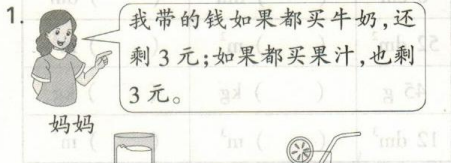 1.
我带的钱如果都买牛奶,还
剩 3 元;如果都买果汁,也剩
3 元。
妈妈